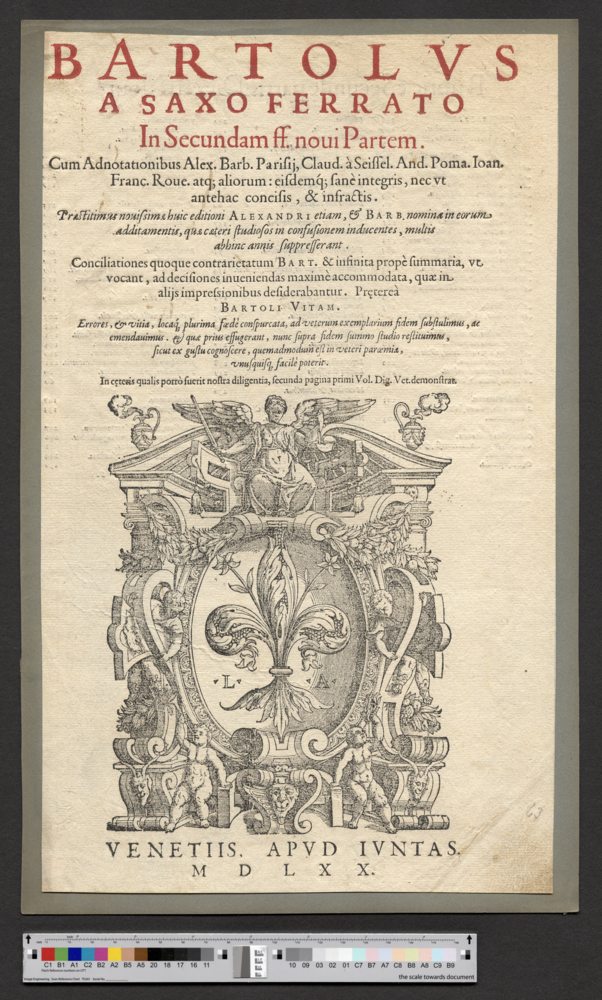 BARTOLVS
A SAXOFERRATO
In Secundam ff. noui Partem.
Cum Adnotationibus Alex. Barb. Parisij, Claud. à Seissel. And. Poma. Ioan.
Franc. Roue. atq; aliorum: eisdemq; sanè integris, nec vt
antehac concisis, & infractis.
Præstitimus nouissimè huic editioni ALEXANDRI etiam, & BARB. nomina in eorum
additamentis, quæ cæteri studiosos in confusionem inducentes, multis
abhinc annis suppresserant.
Conciliationes quoque contrarietatum BART. & infinita propè summaria, vt
vocant, ad decisiones inueniendas maximè accommodata, quæ in
alijs impressionibus desiderabantur. Prętereà
BARTOLI VITAM.
Errores, & vitia, locaq́; plurima fœdè conspurcata, ad veterum exemplarium fidem substulimus, ac
emendauimus. & quæ prius effugerant, nunc supra fidem summo studio restituimus,
sicut ex gustu cognoscere, quemadmodum est in veteri parœmia,
vnusquisq; facilè poterit.
In cęteris qualis porrò fuerit nostra diligentia, secunda pagina primi Vol. Dig. Vet. demonstrat.
L A
VENETIIS, APVD IVNTAS.
M D L X X.
63
C1 B1 A1 C2 B2 A2 B5 A5 20 18 17 16 11
10 09 03 02 01 C7 B7 A7 C8 B8 A8 C9 B9
the scale towards document